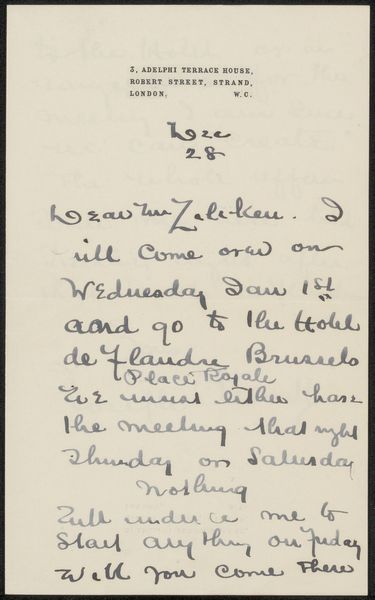 3, ADELPHI TERRACE HOUSE,
ROBERT STREET, STRAND,
LONDON, W.C.
Dec
28
Dear Mr Zilcken. I
will come over on
Wednesday Jan 1st
and go to the Hotel
de Flandre Brussels
Place Royale
We must either have
the meeting that night
Thursday or Saturday
Nothing
will induce me to
start anything on Friday
Will you come there